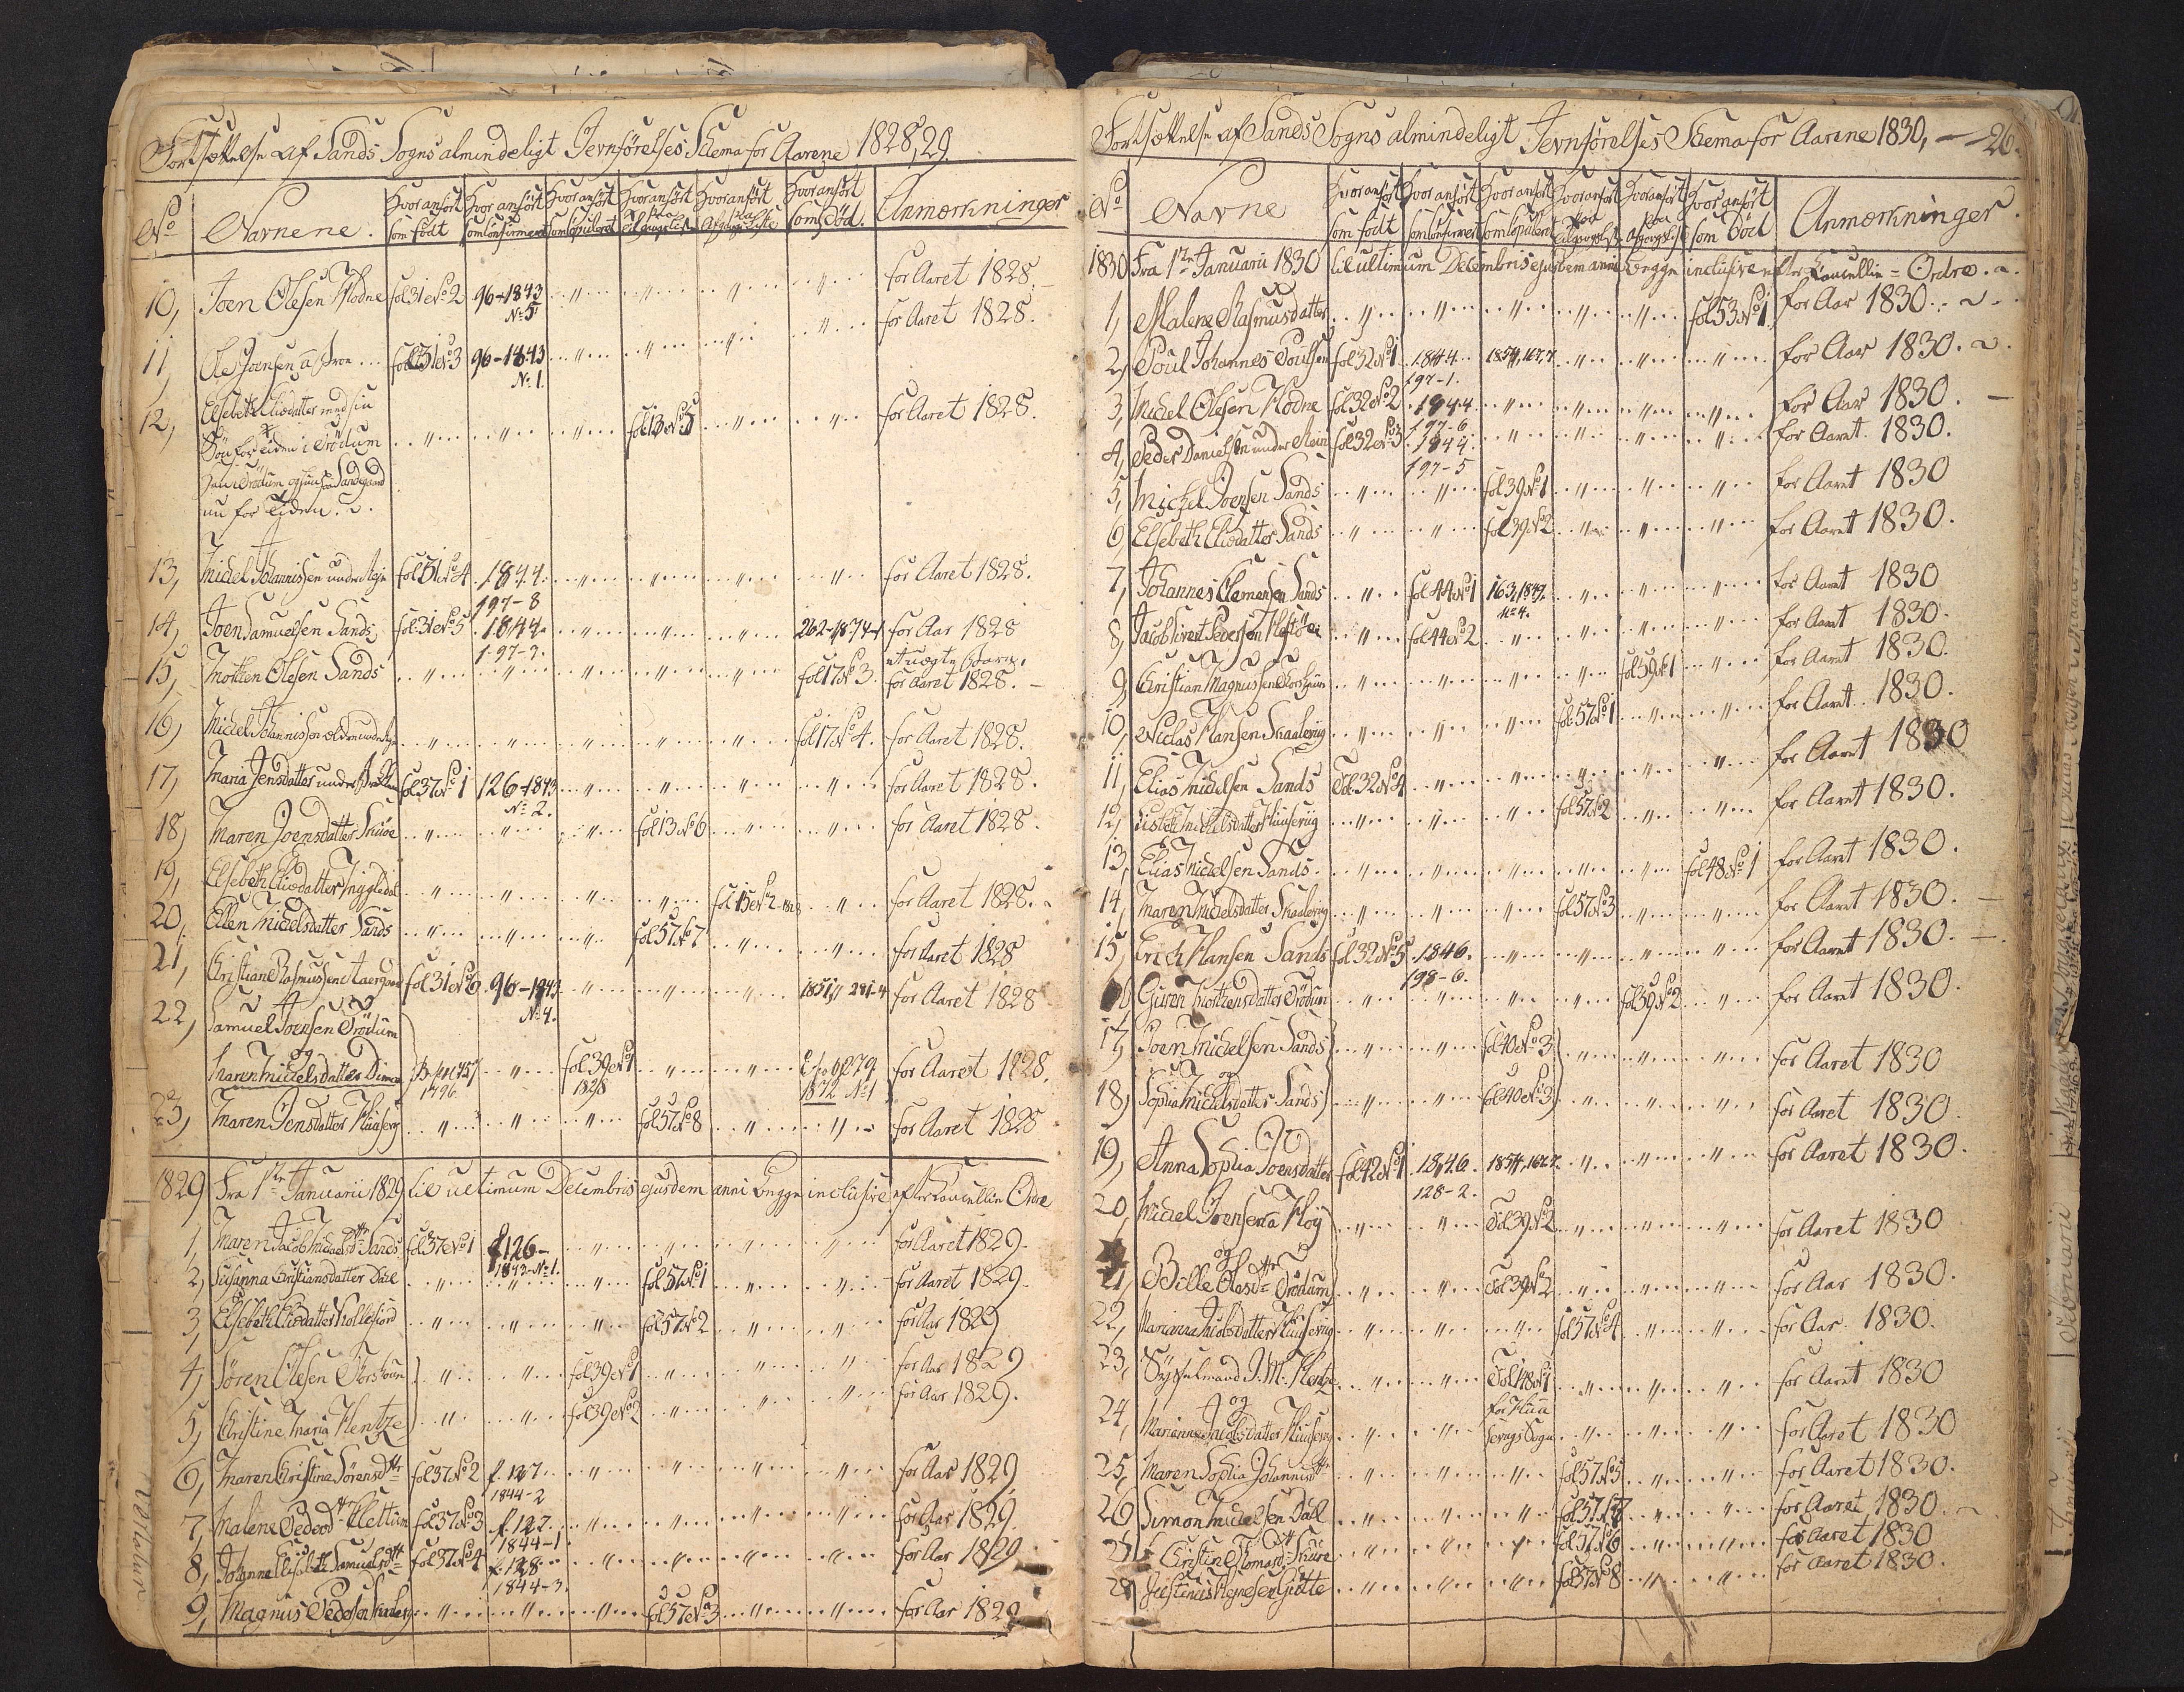 Fortsættelse af Sands Sogns almindeligt Jevnførelses Schema for Aarene 1828, 29.
No Navnene. Hvor anført som født Hvor anført som Confirmeret Hvor anført som Copuleret Hvor anført paa Tilgangslisten Hvor anført paa Afgangs Liste Hvor anført som Død. Anmærkninger
10, Joen Olesen Modne fol 31 No 2 96-1843 No 5 for Aaret 1828.
11, Ole Joensen fol 31 No 3 96-1843 No 1. for Aaret 1828.
12, Elsebeth Eliædatter med sin
Søn for tiden i Trødum fol 13 No 5 for Aaret 1828.
nu for Tiden.
13, Michel Johannissen under fol 31 No 4 1844. 197-8 for Aaret 1828.
14, Joen Samuelsen Sands fol 31 No 5 1844. 197-3. 262-1874-1 for Aar 1828
15, Morten Olesen Sands fol 17 No 3. for Aaret 1828.
16, Michel Johannissen fol 17 No 4. for Aaret 1828.
17, Maria Jensdatter under fol 37 No 1 126-1843 No 2. for Aaret 1828.
18, Maren Joensdatter Skuøe fol 13 No 6 for Aaret 1828.
19, Elsebeth Eliædatter fol 15 No 2 1828 for Aaret 1828.
20, Ellen Michelsdatter Sands fol 57 No 7 for Aaret 1828
21, Christian Rasmussen fol 31 No 6 96-1843 No 4. 1851 281-4 for Aaret 1828
22, Samuel Joensen Trødum
og
Maren Michelsdatter Dimon 1796 fol 39 No 1 1828 1872 No 1 for Aaret 1828.
23, Maren Jensdatter Huusevig fol 57 No 8 for Aaret 1828
1829 Fra 1te Januarii 1829 til ultimum Decembris ejusdem anni begge inclusive efter Cancellie Ordre
1, Maren Jacob Michaels Dtr Sands fol 37 No 1 f 126- 1843-No 1. for Aaret 1829.
2, Susanna Christiansdatter Dahl fol 57 No 1 for Aaret 1829.
3, Elsebeth Eliædatter Kollefiord fol 57 No 2 for Aar 1829
4, Søren Olesen Thorshavn fol 39 No 1 for Aar 1829
5, Christine Maria Hentze fol 39 No 2 for Aar 1829.
6, Maren Christina Sørensdtr fol 37 No 2 f. 127. 1844-2 for Aar 1829
7, Malene Pedersdtr Klettum fol 37 No 3 f. 127. 1844-1. for Aar 1829.
8, Johanne Elisabeth Samuelsdtr fol 37 No 4 f. 128. 1844-3. for Aar 1829
9, Magnus Pedersen fol 57 No 3 for Aar 1829
Fortsættelse af Sands Sogns almindeligt Jevnførelses Schema for Aarene 1830, 26.
No Navne Hvor anført som født Hvor anført som Confirmeret Hvor anført som Copuleret Hvor anført paa Tilgangslist Hvor anført paa Afgangslist Hvor anført som Død Anmærkninger.
1830 Fra 1te Januarii 1830 til ultimum Decembris ejusdem anni begge inclusive efter Cancellie-Ordre.
1, Malene Rasmusdatter fol 53 No 1. for Aar 1830.
2, Poul Johannes Poulsen fol 32 No 1 1844. 197-1. 1854, 167.7. for Aar 1830.
3, Michel Olesen Modne fol 32 No 2 1844. 197-6. for Aar 1830.
4, Peder Danielsen under fol 32 No 3 1844. 197-5 for Aaret 1830.
5, Michel Joensen Sands fol 39 No 1 for Aaret 1830
6, Elsebeth Eliædatter Sands fol 39 No 2 for Aaret 1830.
7, Johannes Clemensen Sands fol 44 No 1 163, 1847. No 4. for Aaret 1830
8, Jacob Sivert Pedersen fol 44 No 2 for Aaret 1830.
9, Christian Magnussen Thorshavn fol 59 No 1 for Aaret 1830.
10, Niclas Hansen Skaalevig fol 57 No 1 for Aaret 1830.
11, Elias Michelsen Sands Fol. 32 No 4 for Aaret 1830
12, Lisbeth Michelsdatter Huusevig fol 57 No 2 for Aaret 1830.
13, Elias Michelsen Sands. fol 48 No 1 for Aaret 1830.
14, Maren Michelsdatter Skaalevig fol 57 No 3 for Aaret 1830.
15, Erich Hansen Sands fol 32 No 5 1846. 198-6. for Aaret 1830.
16, Guren Mortensdatter Trødum fol 59 No 2 for Aaret 1830.
17, Joen Michelsen Sands fol 40 No 3 for Aaret 1830
og
18, Sophia Michelsdatter Sands fol 40 No 3 for Aaret 1830.
19, Anna Sophia Joensdatter fol 42 No 1 1846. 128-2. 1854, 167.7. for Aaret 1830.
20, Michel Joensen a Høj Fol 39 No 2 for Aaret 1830
og
21, Bille Olesdtr Trødum Fol 39 No 2 for Aar 1830.
22, Marianna Jacobsdatter Huusevig fol 57 No 4 for Aar 1830.
23, Sysselmand J. M. Hentze Fol 48 No 1 for Aaret 1830
og
24, Marianna Jacobsdatter Huusevig for Huusevigs Sogn for Aaret 1830
25, Maren Sophia Johannisdtr fol 57 No 5 for Aaret 1830.
26 Simon Michelsen Dahl fol 57 No 7 for Aaret 1830.
27, Christin Thomasd. Skuøe fol 57 No 6 for Aaret 1830
28 Justinus fol 57 No 8 for Aaret 1830.